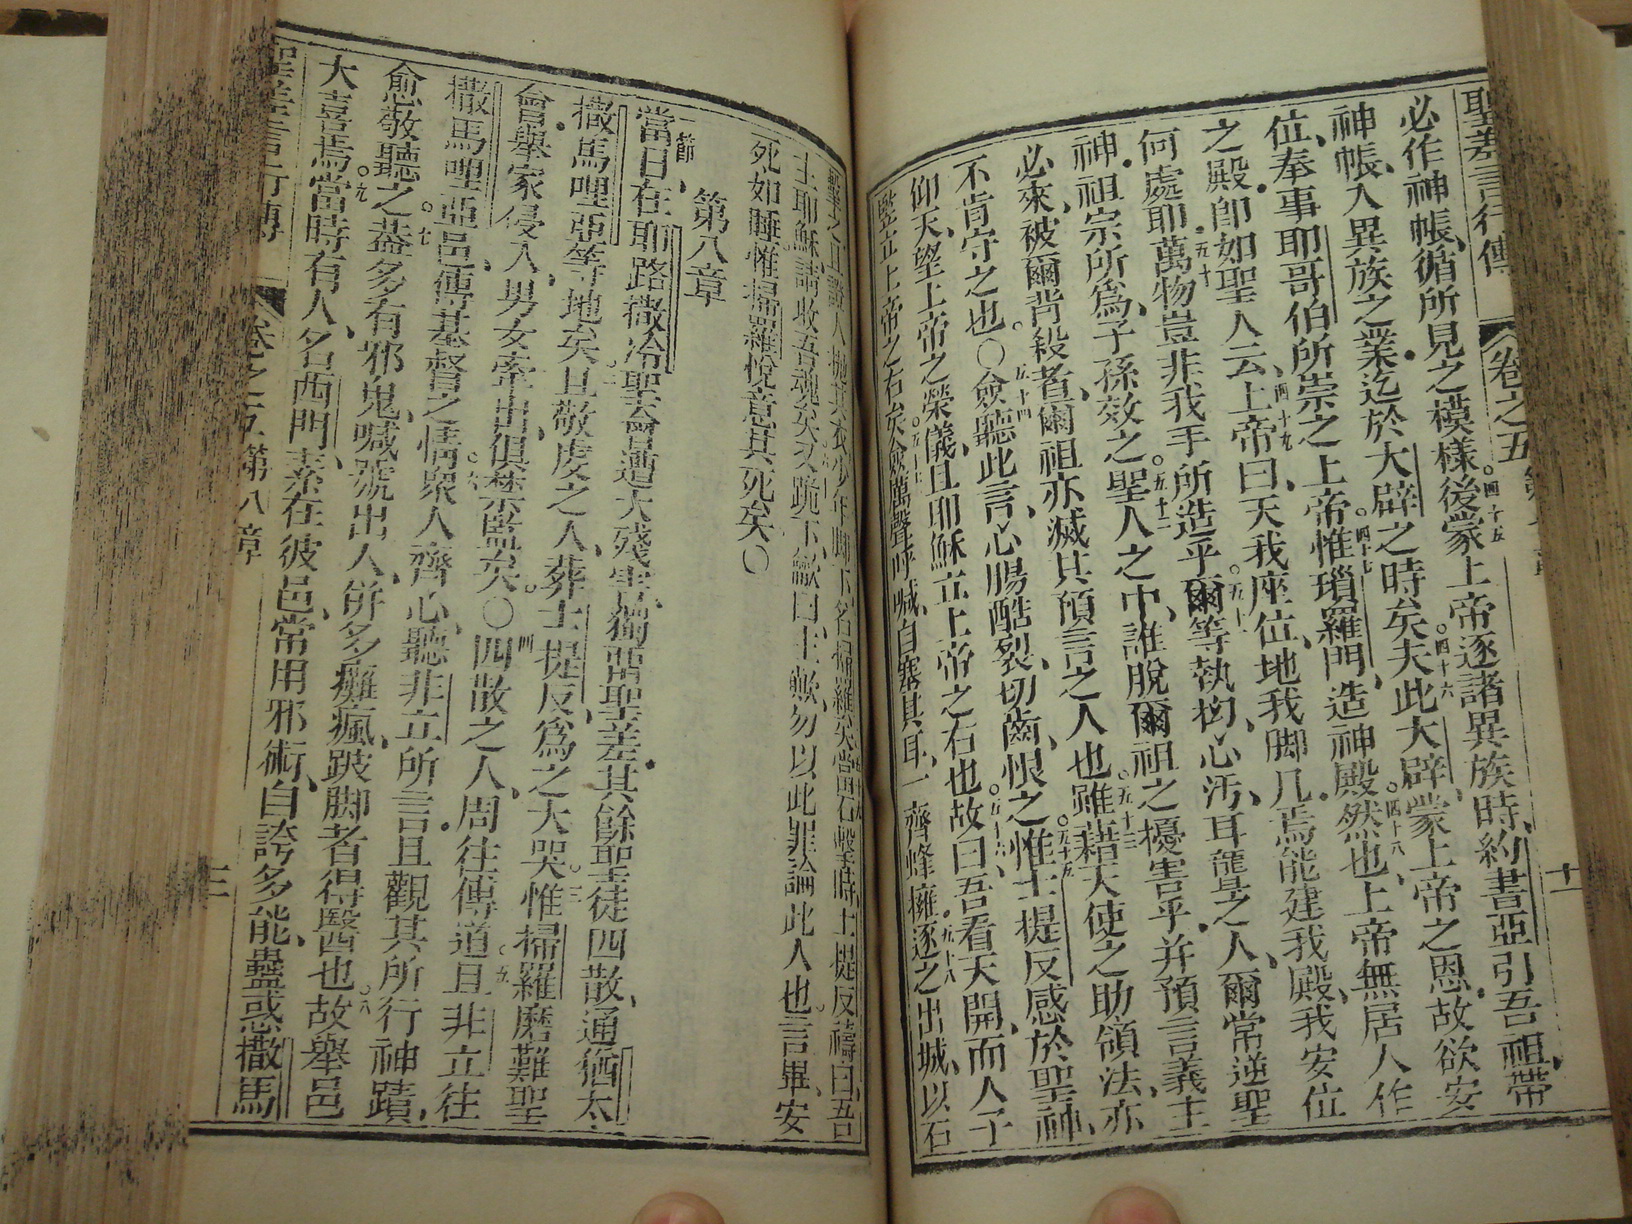 聖差言行傳 卷之五
十一
必作神帳、循所見之模樣。四十五後蒙上帝逐諸異族時、約書亞引吾祖帶
神帳、入異族之業、迄於大辟之時矣。四十六夫此大辟、蒙上帝之恩、故欲安
位、奉事耶哥伯所崇之上帝。四十七惟瑣羅門、造神殿。四十八然也、上帝無居人作
之殿、卽如聖人云、四十九上帝曰、天我座位、地我脚几、焉能建我殿、我安位
何處耶。五十萬物豈非我手所造乎。五十一爾等執拗、心汚、耳聾之人、爾常逆聖
神、祖宗所爲、子孫效之。五十二聖人之中、誰脫爾祖之擾害乎、并預言義主
必來、被爾背殺者、爾祖亦滅其預言之人也。五十三雖藉天使之助頒法、亦
不肯守之也。〇五十四僉聽此言、心腸酷裂、切齒恨之。五十五惟士提反感於聖神、
仰天望上帝之榮儀、且耶穌立上帝之右也。五十六故曰、吾看天開、而人子
竪立上帝之右矣。五十七僉萬聲呼喊、自塞其耳、一齊蜂擁。五十八逐之出城、以石
擊之、且證人拋其衣少年脚下、名掃羅矣。五十九當因石擊時、士提反禱曰、吾
主耶穌、請收吾魂矣。又跪下、歎曰、主歟、勿以此罪論此人也。言畢、安
死如睡、惟掃羅悅意其死矣。〇
第八章
一節當日、在耶路撒冷聖會遭大殘害、獨西聖差、其餘聖徒四散、通猶太、
撒馬哩亞等地矣。二且敬虔之人、葬士提反、爲之大哭。三惟掃羅磨難聖
會、舉家侵入、男女牽出、俱禁監矣。〇四四散之人、周往傳道。五且非立往
撒馬哩亞邑、傳基督之情。六衆人齊心、聽非立所言、且觀其所行神蹟、
愈敬聽之。七蓋多有邪鬼、喊號出人、併多癱瘋、跛脚者得醫也。八故舉邑
大喜焉。九當時有人、名西門、素在彼邑、常用邪術、自誇多能、蠱惑撒馬
聖差言行傳 卷之五 第八章
三